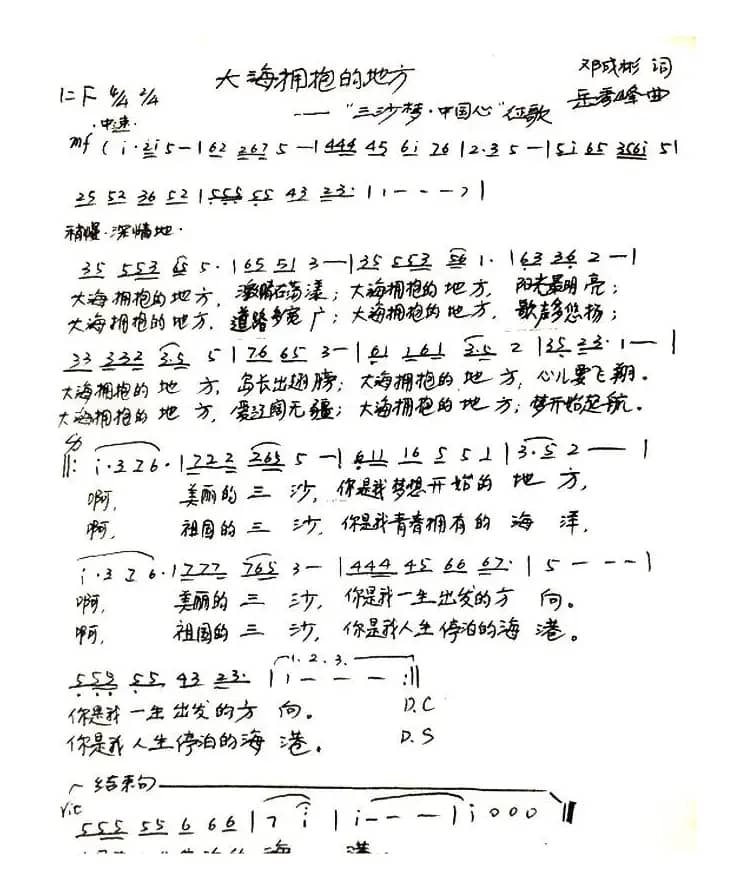 大海拥抱的地方
邓成彬 词
1=F 4/4 2/4
——"三沙梦·中国心"征歌
岳秀峰曲
·中速·
mf ( i·2i 5 - | 62 267 5 - | 444 45 6i 76 | 2·3 5 - | 5i 65 356i 5 |
25 52 36 52 | 555 55 43 23· | 1 - - - ) |
稍慢·深情地·
35 553 65 5· | 65 51 3 - | 35 553 56 1· | 63 36 2 - |
大海拥抱的地方, 激情在荡漾; 大海拥抱的地方, 阳光最明亮;
大海拥抱的地方, 道路多宽广; 大海拥抱的地方, 歌声多悠扬;
33 332 3·5 5 | 76 65 3 - | 61 161 3·5 2 | 35 23· 1 - - |
大海拥抱的地方, 岛长出翅膀; 大海拥抱的地方, 心儿要飞翔。
大海拥抱的地方, 爱辽阔无疆; 大海拥抱的地方; 梦开始起航。
||: i·376· | 722 265 5 - | 611 16 5 5 1 | 3·5 2 - - |
啊, 美丽的三沙, 你是我梦想开始的地方,
啊, 祖国的三沙, 你是我青春拥有的海洋,
i·376· | 777 765 3 - | 444 45 66 67· | 5 - - - |
啊, 美丽的三沙, 你是我一生出发的方向。
啊, 祖国的三沙, 你是我人生停泊的海港。
1. 2. 3.
555 55 43 23· | i - - - :||
你是我一生出发的方向。 D.C
你是我人生停泊的海港。 D.S
结束句
rit
555 55 6 66 | 7 i | i - - - | i 0 0 0 ||